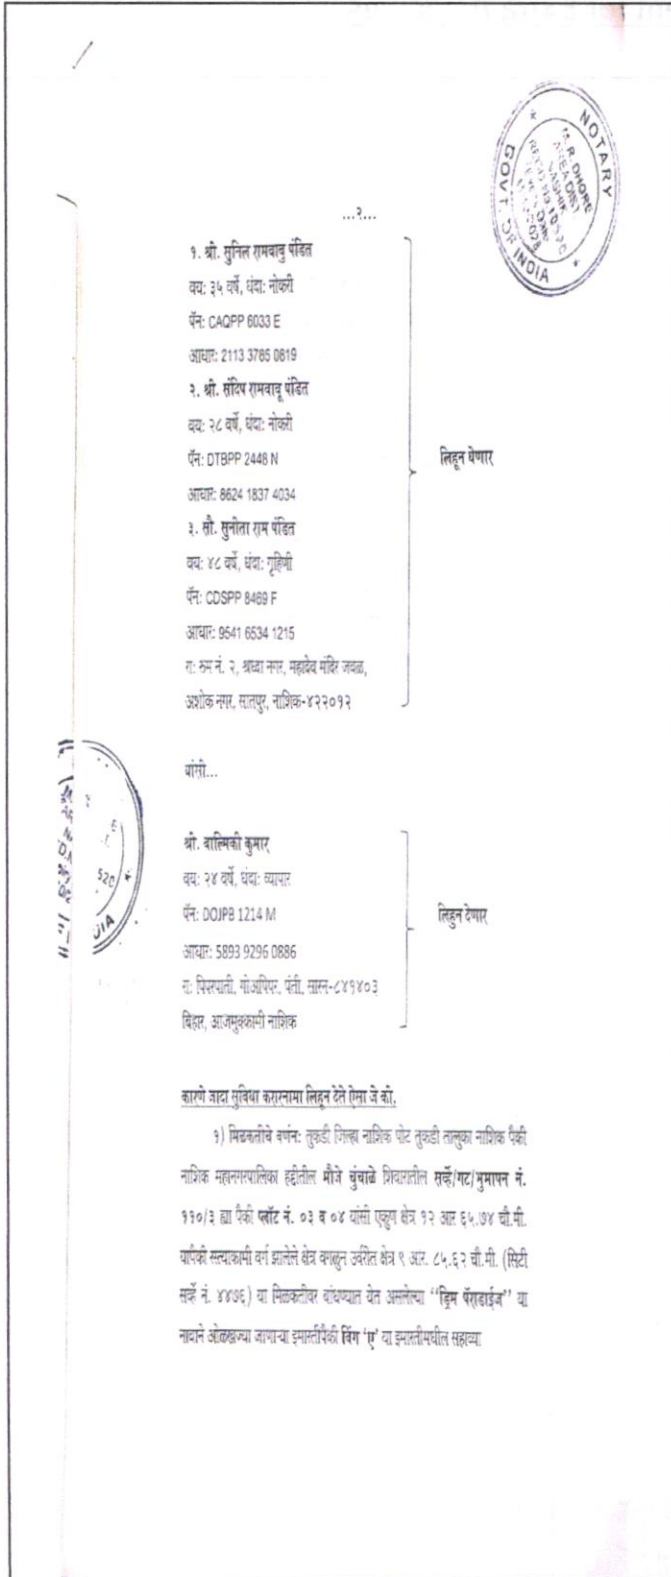 NOTARY
GOVT. OF INDIA
M. R. DHORE
AREA DIST
NASHIK
...२...
१. श्री. सुनिल रामबाबु पंडित
वय: ३५ वर्षे, धंदा: नोकरी
पॅन: CAQPP 6033 E
आधार: 2113 3785 0819
२. श्री. संदिप रामबाबू पंडित
वय: २८ वर्षे, धंदा: नोकरी
पॅन: DTBPP 2448 N
आधार: 8624 1837 4034
लिहून घेणार
३. सौ. सुनीता राम पंडित
वय: ४८ वर्षे, धंदा: गृहिणी
पॅन: CDSPP 8469 F
आधार: 9541 6534 1215
रा: रुम नं. २, श्रध्दा नगर, महादेव मंदिर जवळ,
अशोक नगर, सातपुर, नाशिक-४२२०१२
यांसी...
श्री. वाल्मिकी कुमार
वय: २४ वर्षे, धंदा: व्यापार
पॅन: DOJPB 1214 M
लिहुन देणार
आधार: 5893 9296 0886
रा: पिपरपाती, गोअपिपर, पंती, सारन-८४१४०३
बिहार, आजमुक्कामी नाशिक
520
DIA
कारणे जादा सुविधा करारनामा लिहून देते ऐसा जे की,
१) मिळकतीचे वर्णन: तुकडी जिल्हा नाशिक पोट तुकडी तालुका नाशिक पैकी
नाशिक महानगरपालिका हद्दीतील मौजे चुंचाळे शिवारातील सर्व्हे/गट/भुमापन नं.
११०/३ ह्या पैकी प्लॉट नं. ०३ व ०४ यांसी एकुण क्षेत्र १२ आर ६५.७४ चौ.मी.
यापैकी रस्त्याकामी वर्ग झालेले क्षेत्र वगळुन उर्वरीत क्षेत्र ९ आर. ८५.६२ चौ.मी. (सिटी
सर्व्हे नं. ४४७६) या मिळकतीवर बांधण्यात येत असलेल्या ‘‘ड्रिम पॅराडाईज’’ या
नावाने ओळखज्या जाणाऱ्या इमारतीपैकी विंग ‘ए’ या इमारतीमधील सहाव्या